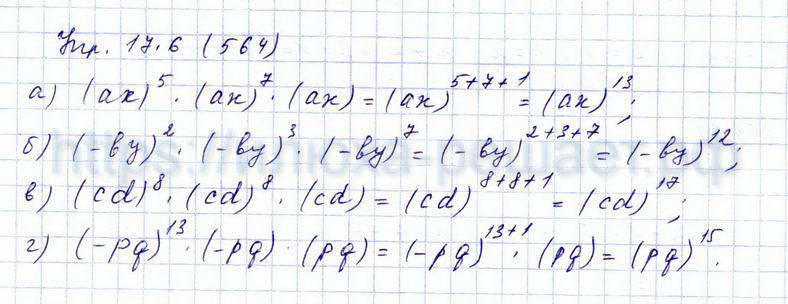 Упр. 17.6 (564)
а) (ax)⁵ · (ax)⁷ · (ax) = (ax)⁵⁺⁷⁺¹ = (ax)¹³;
б) (-by)² · (-by)³ · (-by)⁷ = (-by)²⁺³⁺⁷ = (-by)¹²;
в) (cd)⁸ · (cd)⁸ · (cd) = (cd)⁸⁺⁸⁺¹ = (cd)¹⁷;
г) (-pq)¹³ · (-pq) · (pq) = (-pq)¹³⁺¹ · (pq) = (pq)¹⁵.